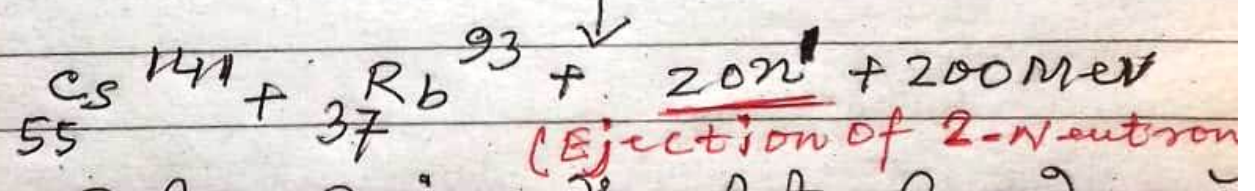 55Cs¹⁴¹ + 37Rb⁹³ + 20n¹ + 200 Mev
(Ejection Of 2-Neutron